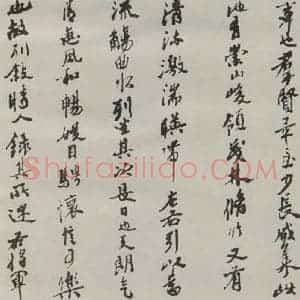 事也羣賢畢至少長咸集此
地有崇山峻領茂林脩竹又有
清流激湍暎帶左右引以為
流觴曲水列坐其次是日也天朗氣
清惠風和暢娛目騁懷信可樂
也故列敘時人錄其所述右將軍
Shufaziliao.COM